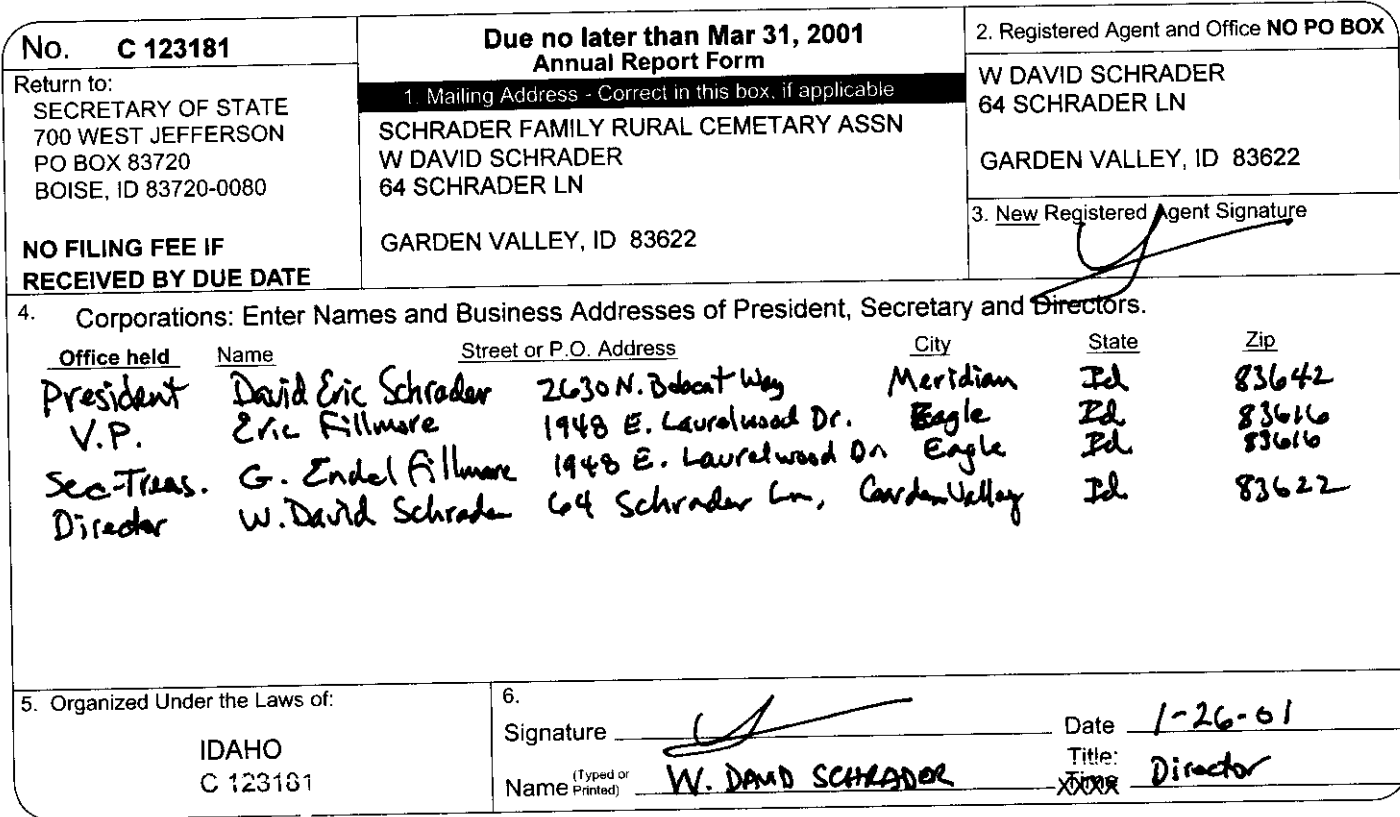 No. C 123181
Return to:
SECRETARY OF STATE
700 WEST JEFFERSON
PO BOX 83720
BOISE, ID 83720-0080
NO FILING FEE IF
RECEIVED BY DUE DATE
Due no later than Mar 31, 2001
Annual Report Form
1. Mailing Address - Correct in this box, if applicable
SCHRADER FAMILY RURAL CEMETARY ASSN
W DAVID SCHRADER
64 SCHRADER LN
GARDEN VALLEY, ID 83622
2. Registered Agent and Office NO PO BOX
W DAVID SCHRADER
64 SCHRADER LN
GARDEN VALLEY, ID 83622
3. New Registered Agent Signature
4. Corporations: Enter Names and Business Addresses of President, Secretary and Directors.
Office held Name Street or P.O. Address City State Zip
President David Eric Schrader 2630 N. Bobcat Way Meridian Id 83642
V.P. Eric Fillmore 1948 E. Laurelwood Dr. Eagle Id 83616
Sec-Treas. G. Endel Fillmore 1948 E. Laurelwood Dr Eagle Id 83616
Director W. David Schrader 64 Schrader Ln, Garden Valley Id 83622
5. Organized Under the Laws of:
IDAHO
C 123181
6.
Signature Date 1-26-01
Name (Typed or Printed) W. DAVID SCHRADER Title: Director